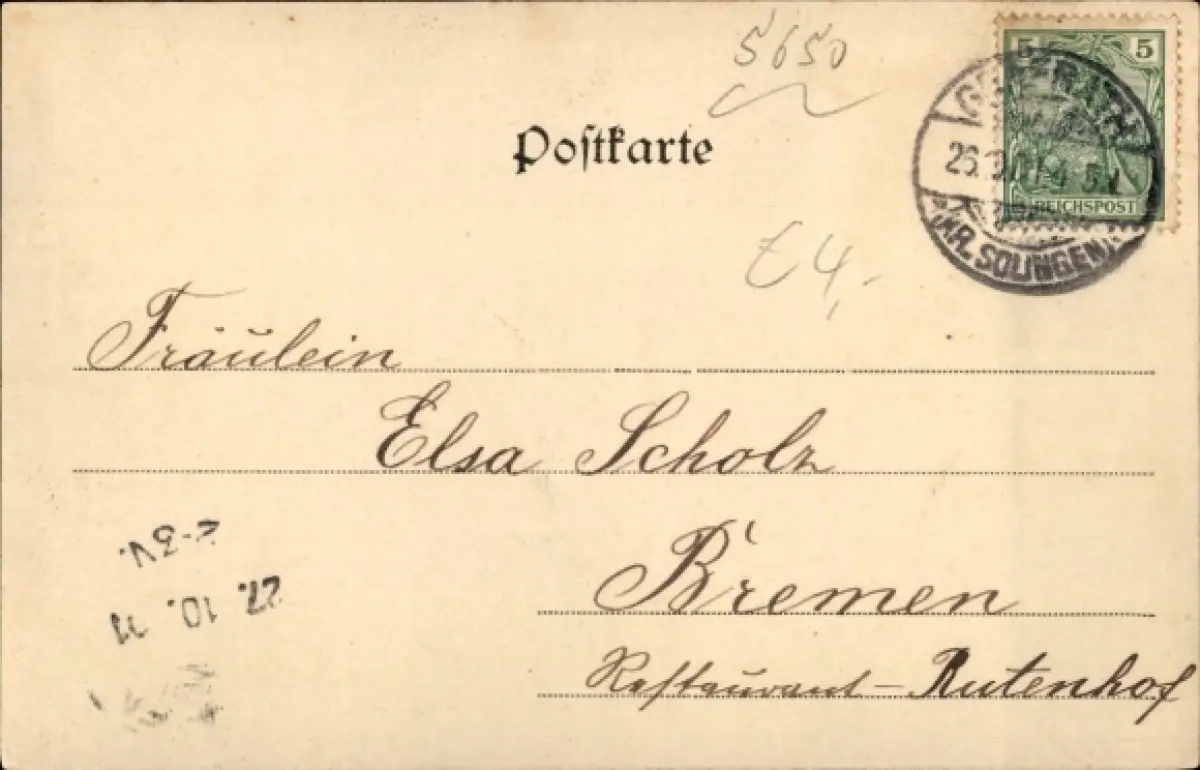 5650
5 5
Postkarte
REICHSPOST
(KR. SOLINGEN)
£ 4,-
Fräulein
Elsa Scholz
Bremen
Restaurant - Rutenhof
27. 10. 11